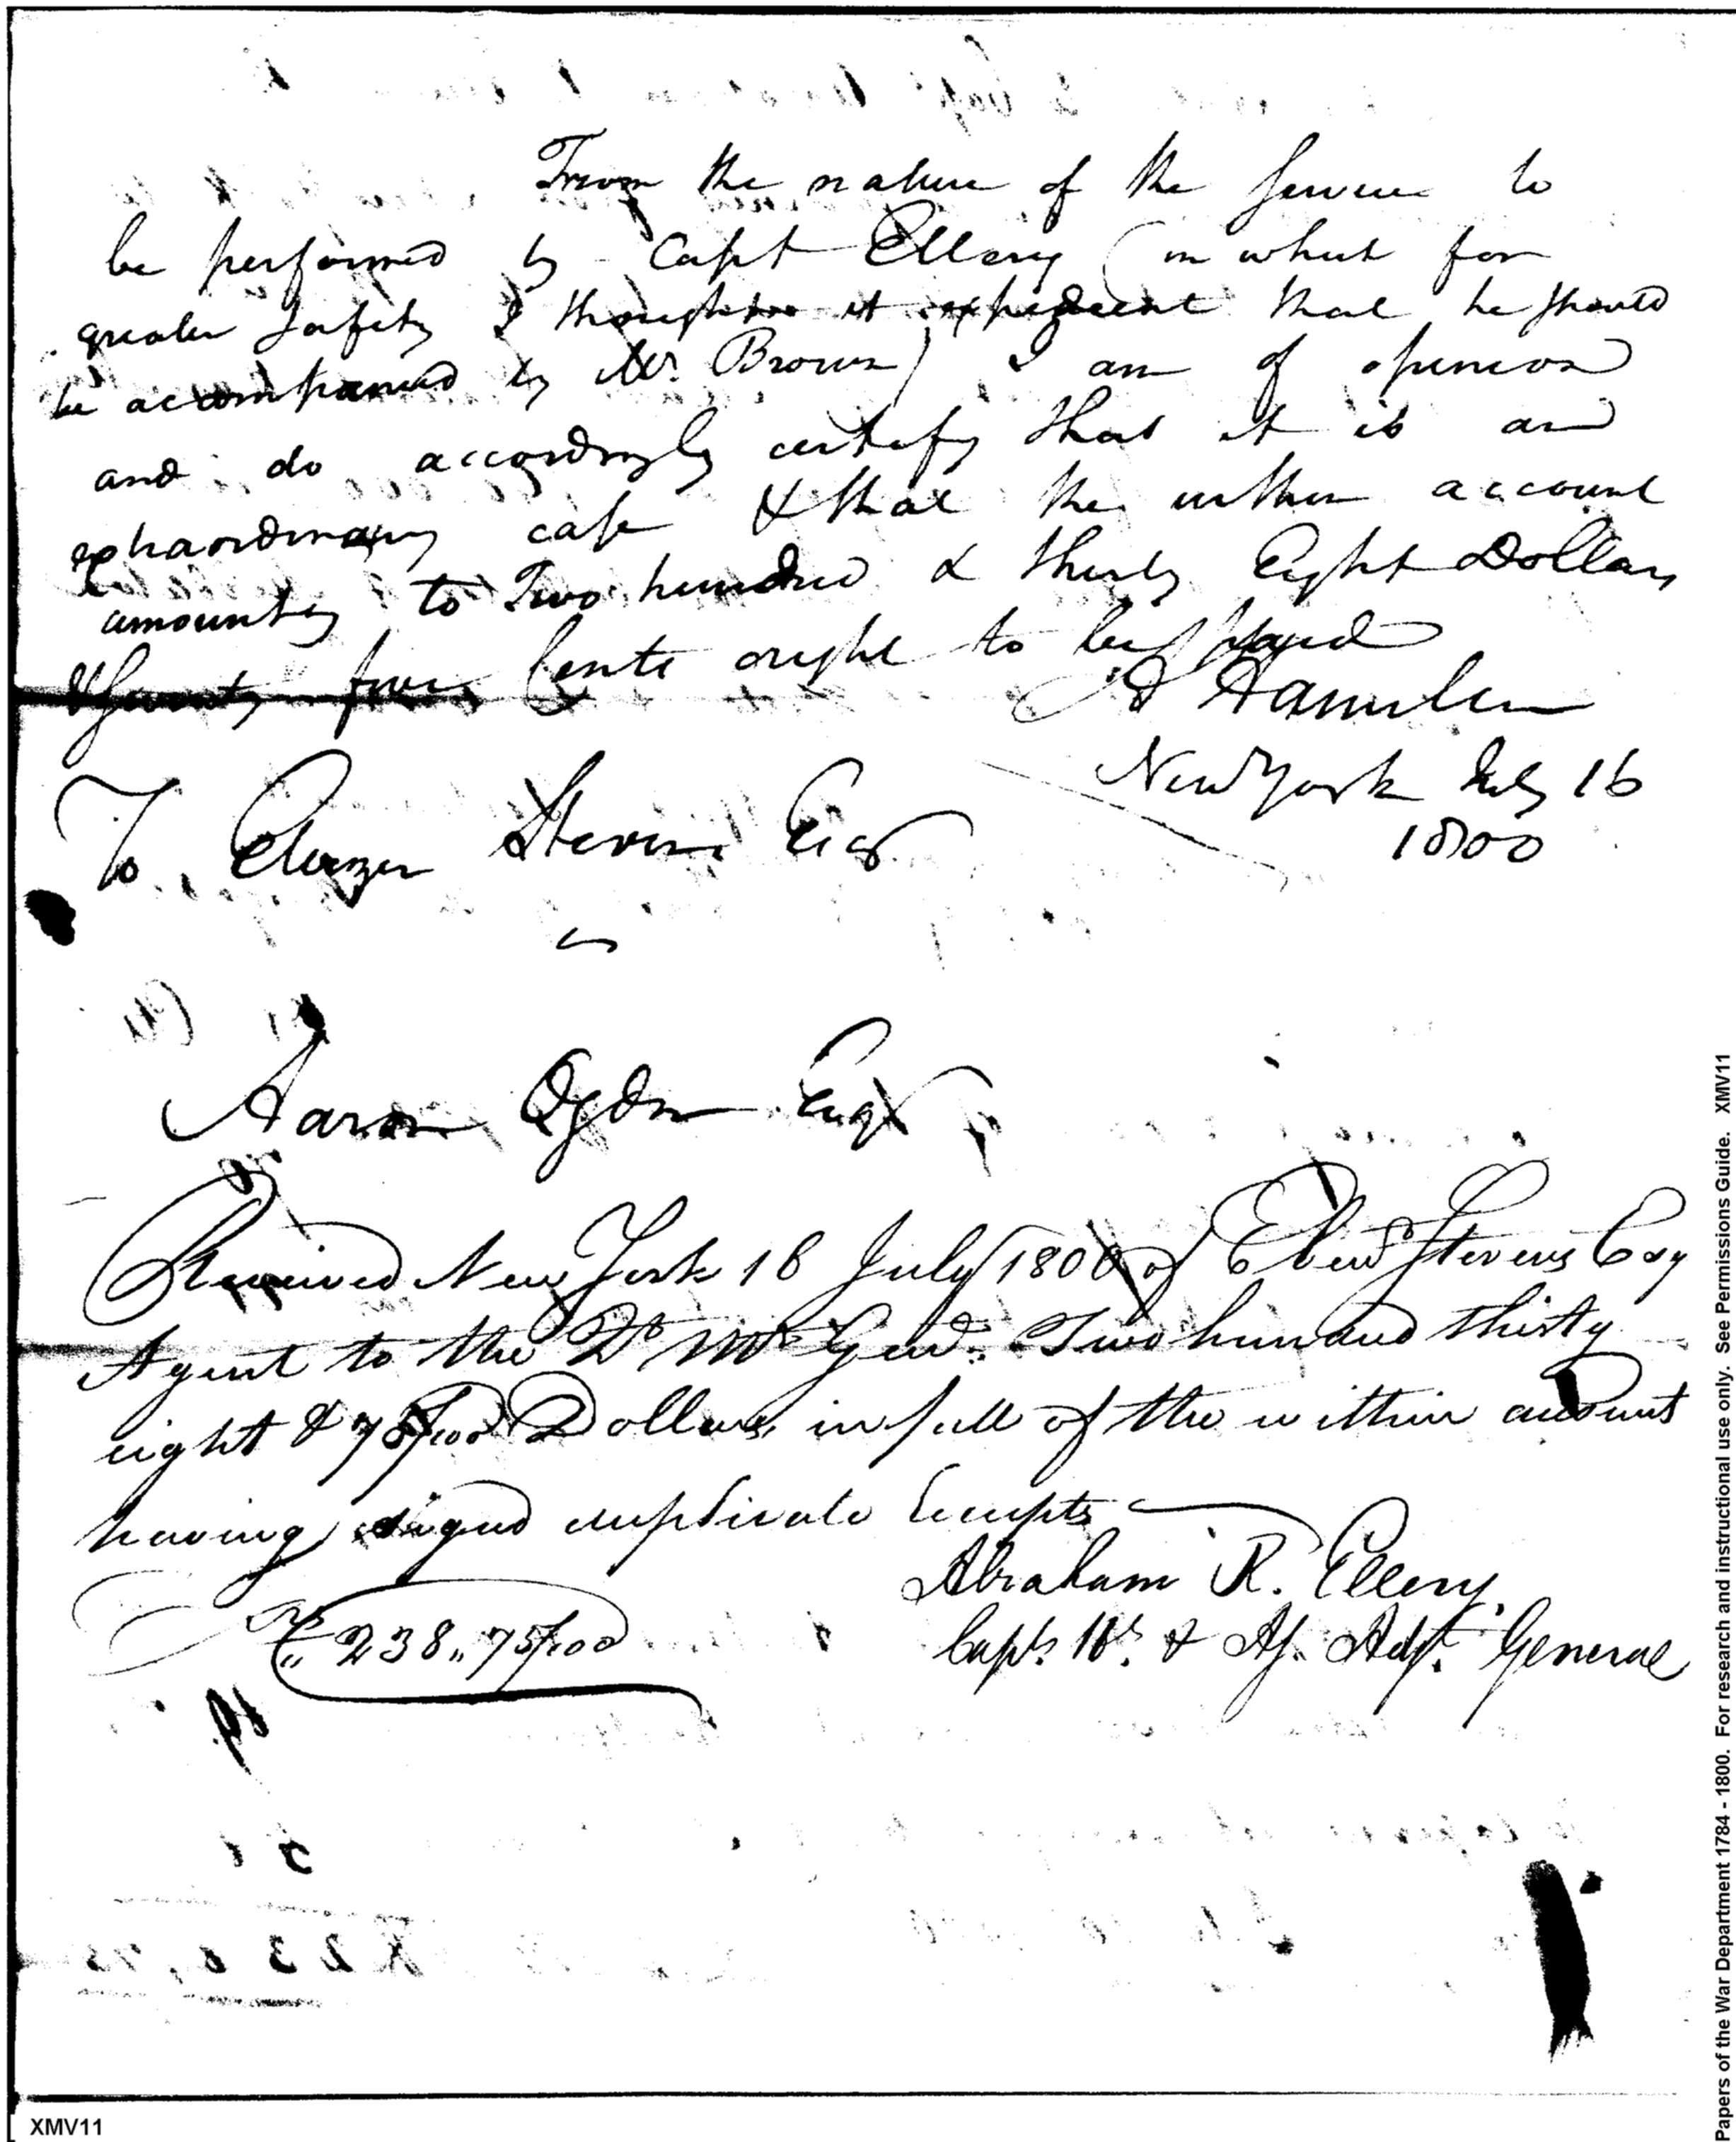 From the nature of the service to
be performed by Capt Ellery (in which for
greater safety I thought it expedient that he should
be accompanied by Mr. Brown) I am of opinion
and do accordingly certify that it is an
extraordinary case & that the within account
amounting to Two hundred & thirty Eight Dollars
& seventy five Cents ought to be paid
A Hamilton
New York July 16
1800
To Ebenezer Stevens Esq
Aaron Ogden Esqr
Received New York 16 July 1800 of Ebenr Stevens Esq
Agent to the Qr Mr Genl. Two hundred thirty
eight & 75/100 Dollars, in full of the within account
having signed duplicate Receipts
Abraham R. Ellery.
238,,75/100
Capt. & Adjt. General
XMV11
Papers of the War Department 1784 - 1800. For research and instructional use only. See Permissions Guide. XMV11